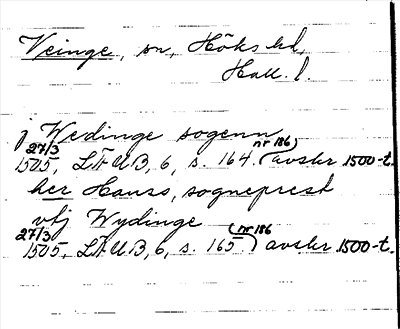 Veinge, sn, Höks hd,
Hall. l.
j Wedinge sogenn
27/3 1505, LÄUB, 6, s. 164. (nr 186) avskr 1500-t.
her Hanss, sogneprest
vtj Wydinge
27/3 1505, LÄUB, 6, s. 165 (nr 186) avskr 1500-t.